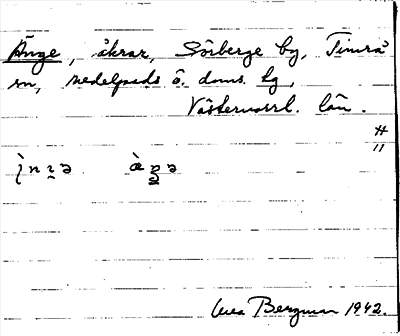 Änge, åkrar, Sörberge by, Timrå
sn, Medelpads ö. doms. tg,
Västernorrl. län.
Bergman 1942.